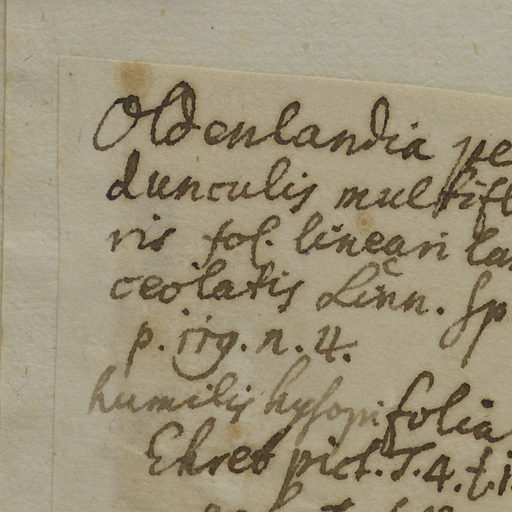 Oldenlandia pe
dunculis multifl
ris fol. lineari lan
ceolatis Linn. Sp
p. 119. n. 4.
humilis hysopifolia
Ehret pict. T. 4. f. 1.